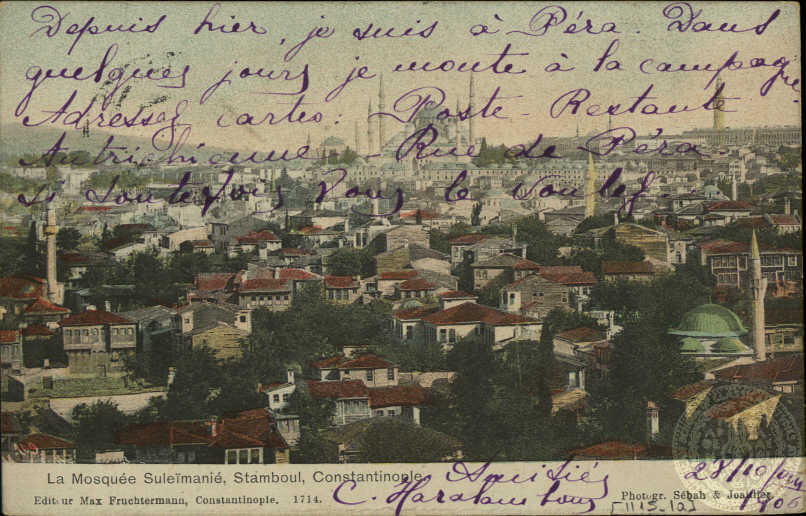 Depuis hier, je suis à Péra. Dans
quelques jours je monte à la campagne
Adresses cartes: Poste-Restante
Autrichienne - Rue de Péra.
si toutefois vous le voulez
La Mosquée Suleïmanié, Stamboul, Constantinople.
Amitiés
Editeur Max Fruchtermann, Constantinople. 1714.
C. Haralambous
[1115.1a]
Photogr. Sébah & Joaillier.